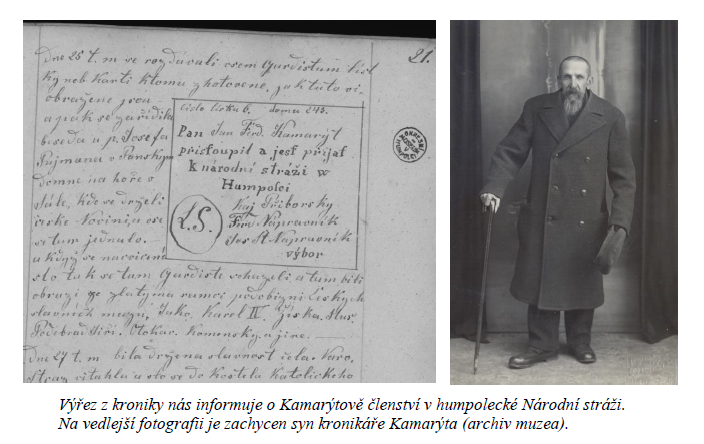 21.
Dne 25 t. m se rozdavali osem Gardistum list
ky neb karti ktomu zhotovene, jak tuto vi-
obražene jsou
apak se zařidila
beseda u p. Josefa
Pujmana v Panskym
domne na hoře v
Sále, kde se drželi
česke Novini a se
se tam jednalo.
a když se
slo tak se tam Gardiste schazeli a tam bili
obrazi ze zlatyma ramci podobizni českych
slavnich mužu, Jako, Karel IV. Žiska. Hus.
Poděbrad Jiři. Komensky a jine.
Dne 27 t. m bila držena slavnost čela. Naro.
Straz vitahla a slo se do Kostela Katolickeho
Čislo listku 6. domu 243.
Pan Jan Ferd. Kamarýt
přistoupil a jest přijat
k národní stráži w
Humpolci
L.S.
Kaj Přiborsky
Fird. Napravnik
Jos St. Napravnik
výbor
Výřez z kroniky nás informuje o Kamarýtově členství v humpolecké Národní stráži.
Na vedlejší fotografii je zachycen syn kronikáře Kamarýta (archiv muzea).